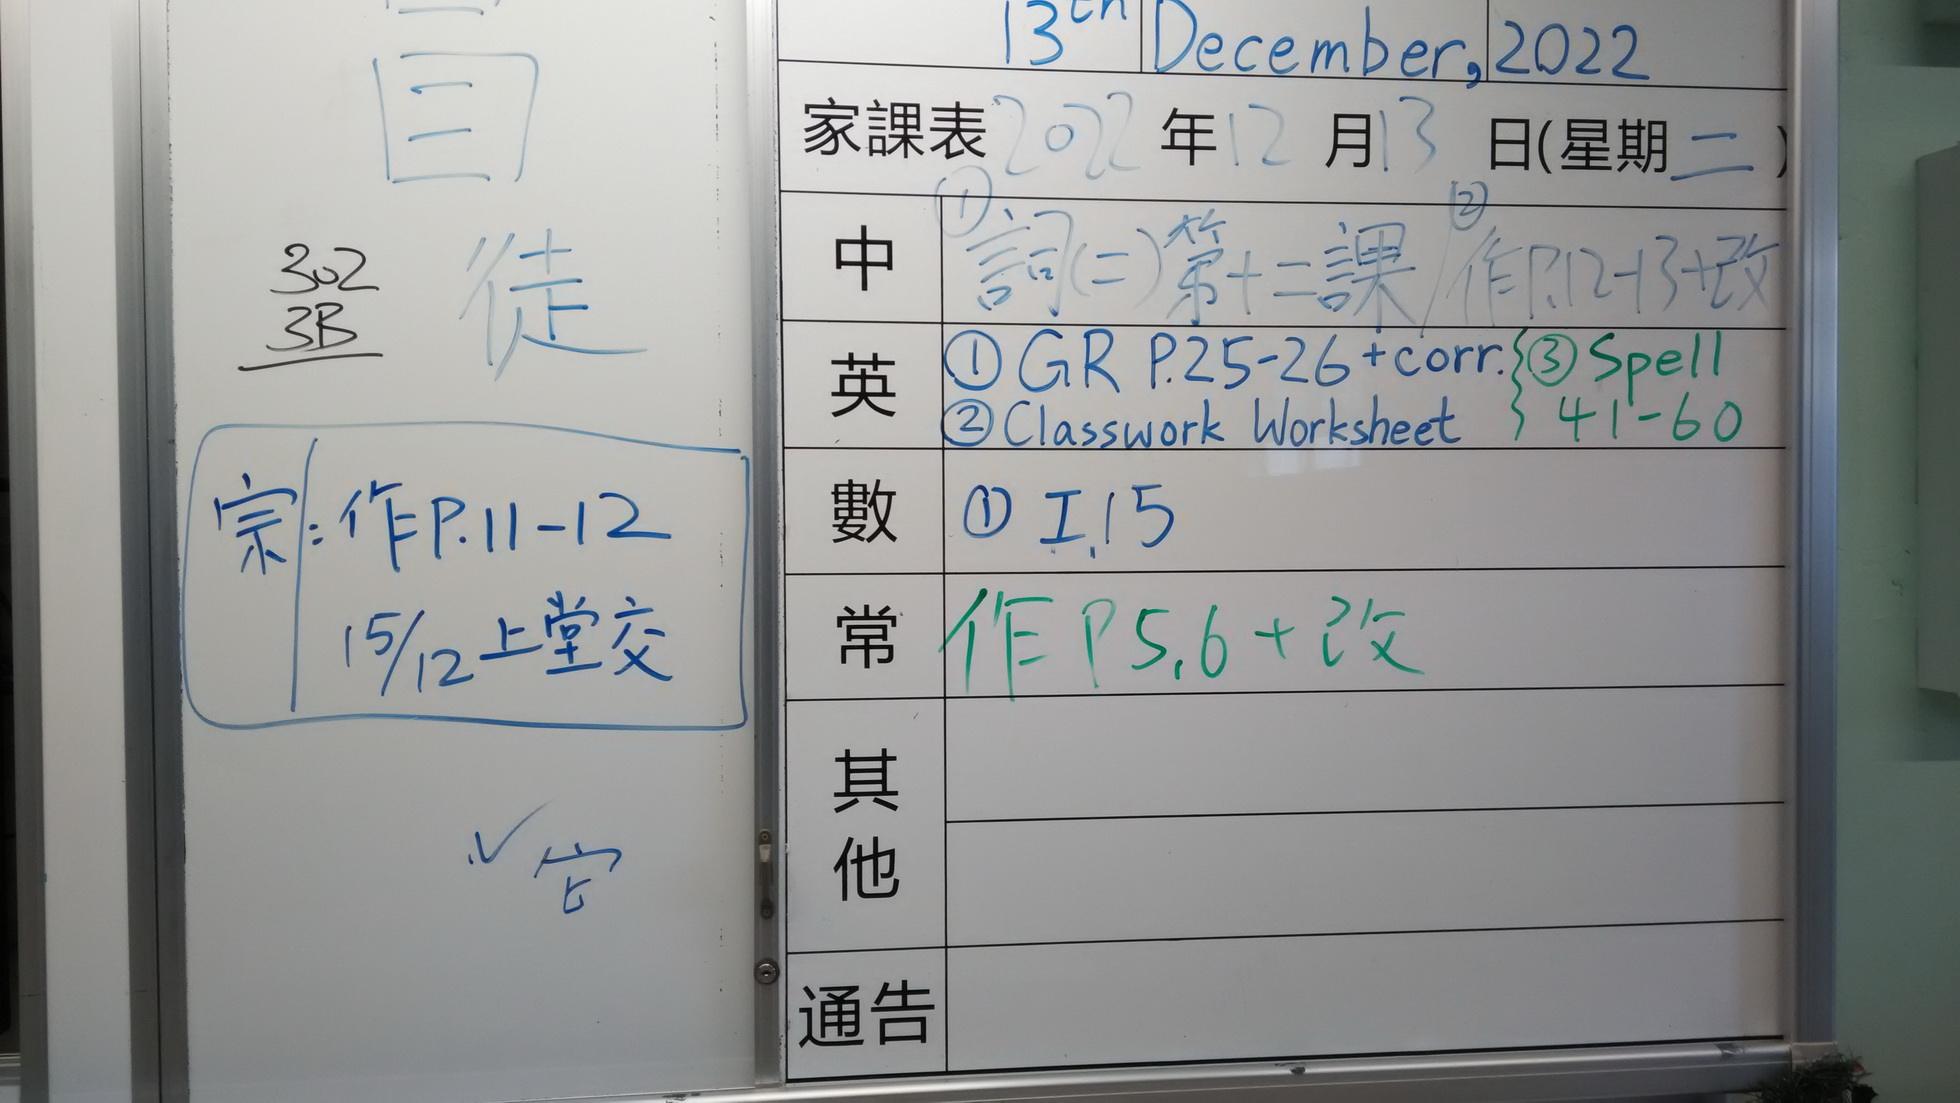 徒
302
3B
宗: 作P.11-12
15/12上堂交
13th December, 2022
家課表 2022 年 12 月 13 日(星期 二 )
中 ① 詞(二)第十二課 / ② 作P.12-13+改
英 ① GR P.25-26 +corr. ③ Spell
② Classwork Worksheet 41-60
數 ① I.15
常 作 P 5,6 + 改
其他
通告